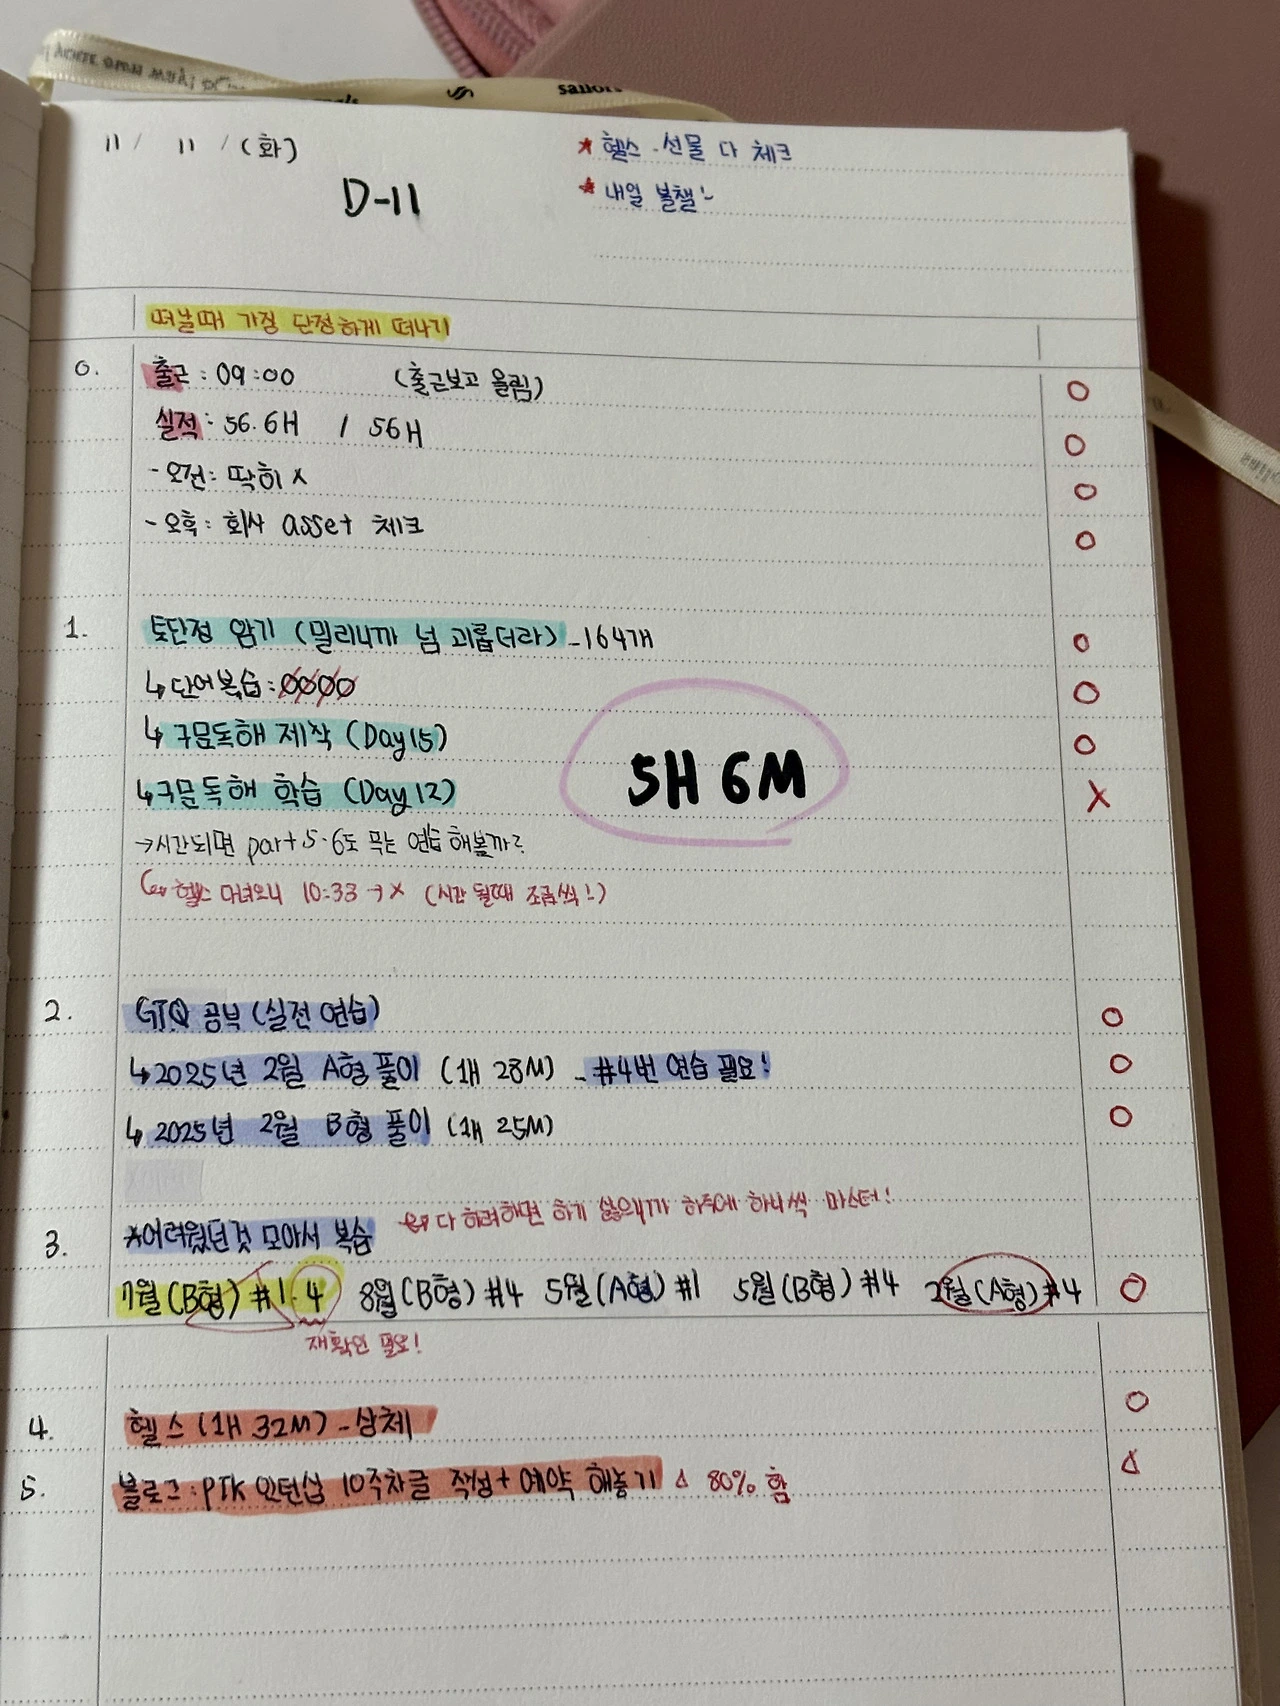 sailors
11 / 11 / (화)
D-11
★ 헬스 - 선물 다 체크
★ 내일 볼챌!~
떠날때 가장 단정하게 떠나기
0. 출근 : 09:00 (출근보고 올림) O
실적 : 56.6H / 56H O
- 오전 : 딱히 X O
- 오후 : 회사 asset 체크 O
1. 토단정 암기 (밀리니까 넘 괴롭더라) - 164개 O
↳ 단어복습 : 0000 O
↳ 구문독해 제작 (Day15) O
↳ 구문독해 학습 (Day12) X
5H 6M
→ 시간되면 part 5·6도 푸는 연습 해볼까?
↪ 헬스 다녀오니 10:33 → X (시간 될때 조금씩!)
2. GTQ 공부 (실전 연습) O
↳ 2025년 2월 A형 풀이 (1H 28M) - #4번 연습 필요! O
↳ 2025년 2월 B형 풀이 (1H 25M) O
3. *어려웠던것 모아서 복습 다 하려하면 하기 싫으니까 하루에 하나씩 마스터!
7월(B형) #1·4 8월(B형) #4 5월(A형) #1 5월(B형) #4 2월(A형) #4 O
재확인 필요!
4. 헬스 (1H 32M) - 상체 O
5. 블로그 : PTK 인턴십 10주차글 작성 + 예약 해놓기 △ 80% 함 △